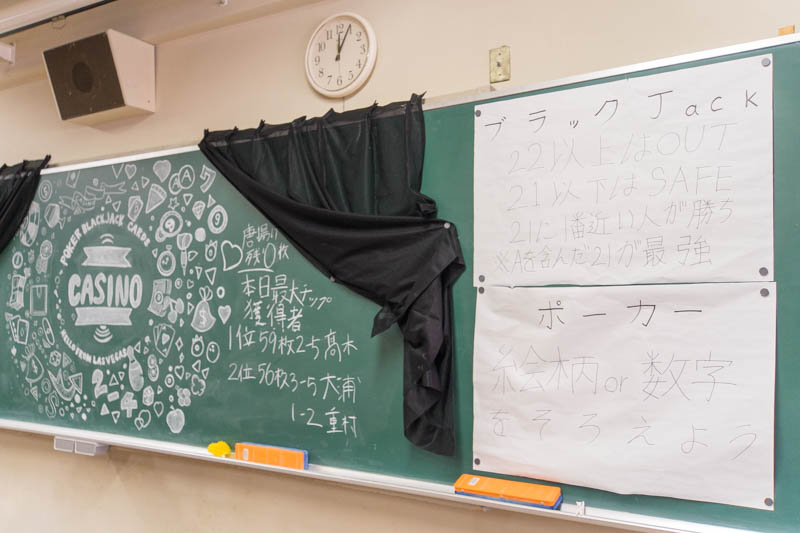 POKER BLACKJACK CARDS
CASINO
HELLO FROM LAS VEGAS
残り0枚
本日最大チップ
獲得者
1位59枚2-5高木
2位56枚3-5大浦
1-2重村
ブラックJack
22以上はOUT
21以下はSAFE
21に1番近い人が勝ち
※Aを含んだ21が最強
ポーカー
絵柄or数字
をそろえよう
12
1
2
3
4
5
6
7
8
9
10
11